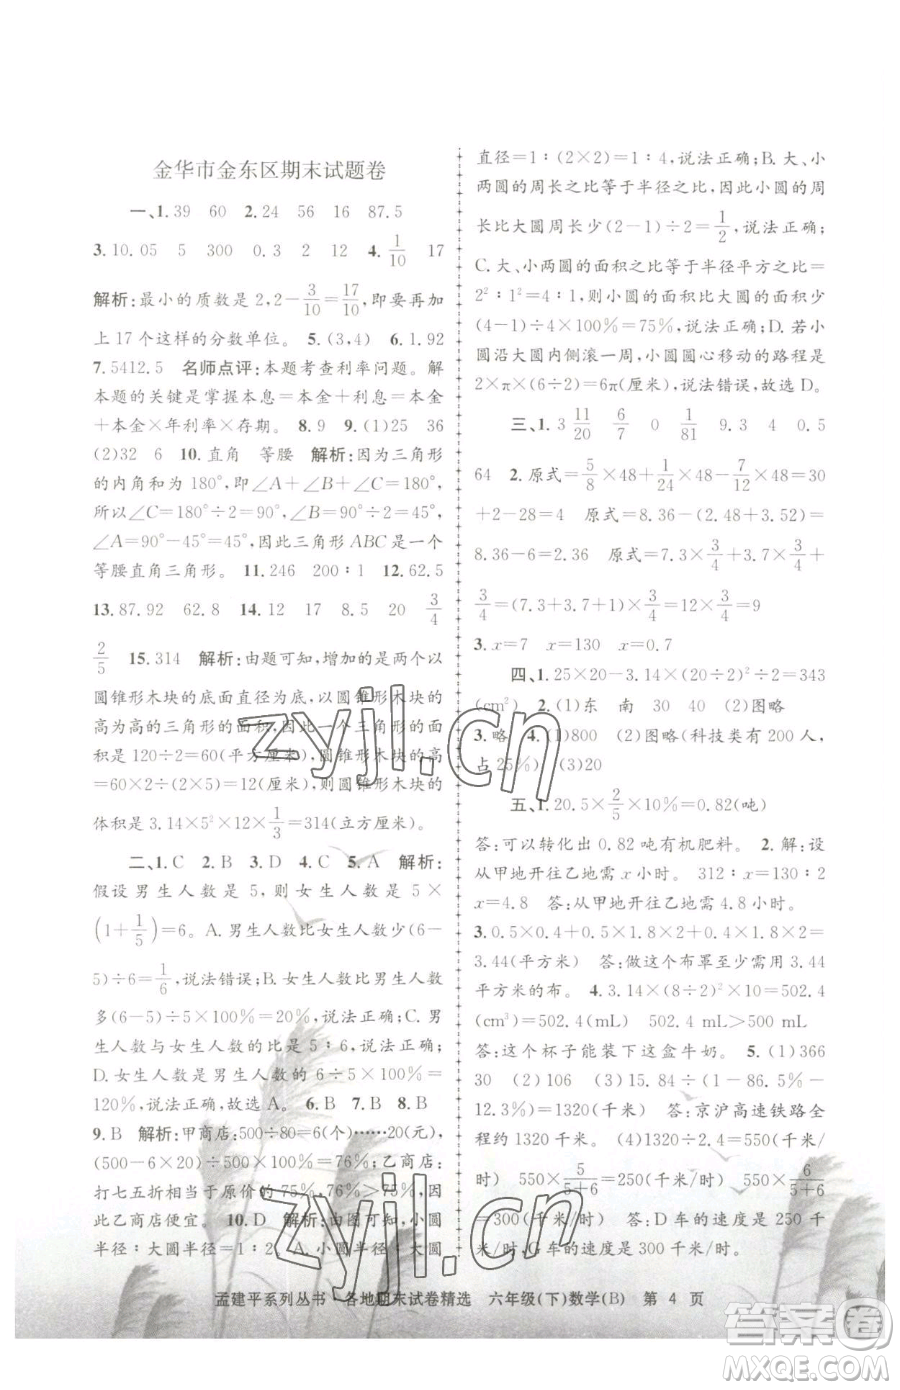 金华市金东区期末试题卷
一、1.39 60 2.24 56 16 87.5
3.10.05 5 300 0.3 2 12 4.1/10 17
解析:最小的质数是2,2-3/10=17/10,即要再加
上17个这样的分数单位。 5.(3,4) 6.1.92
7.5412.5 名师点评:本题考查利率问题。解
本题的关键是掌握本息=本金+利息=本金+
本金×年利率×存期。 8.9 9.(1)25 36
(2)32 6 10.直角 等腰 解析:三角形
的内角和为180°,即∠A+∠B+∠C=180°。
所以∠C=180°÷2=90°,因为∠A=∠B,所以
∠A=90°-45°=45°,因此三角形ABC是一个
等腰直角三角形。 11.246 200∶1 12.62.5
13.87.92 62.8 14.12 17 8.5 20 3/4
2/5 15.314 解析:由题可知,增加的是两个以
圆锥形木块的底面直径为底,以圆锥形木块的
高为高的三角形的面积,因此一个三角形的面
积是120÷2=60(平方厘米),圆锥形木块的高
是60÷(2×5)×2=12(厘米),圆锥形木块的
体积是3.14×5²×12×1/3=314(立方厘米)。
二、1.C 2.B 3.D 4.C 5.A 解析:
假设男生人数是5,则女生人数是5×
(1+1/5)=6。A.男生人数比女生人数少(6-
5)÷6=1/6,说法错误;B.女生人数比男生人数
多(6-5)÷5×100%=20%,说法正确;C.男
生人数与女生人数的比是5∶6,说法正确;
D.女生人数是男生人数的6÷5×100%=
120%,说法正确,故选A。 6.B 7.B 8.B
9.B 解析:甲商店:500÷80=6(个)……20(元),
(6×60+20)÷500×100%=76%;乙商店:
打七五折相当于原价的75%,76%>75%,因
此乙商店便宜。 10.D 解析:由图可知,小圆
半径∶大圆半径=1∶2。A.小圆半径∶大圆
直径=1∶(2×2)=1∶4,说法正确;B.大、小
两圆的周长之比等于半径之比,所以小圆的周
长比大圆周长少(2-1)÷2=1/2,说法正确;
C.大、小两圆的面积之比等于半径平方之比=
2²∶1²=4∶1,则小圆的面积比大圆的面积少
(4-1)÷4×100%=75%,说法正确;D.若小
圆沿大圆内侧滚一周,小圆圆心移动的路程是
2×π×(6÷2)=6π(厘米),说法错误,故选D。
三、1.3 11/20 6/7 0 1/81 9.4 0.5
64 2.原式=5/8×48+1/24×48-7/12×48=30
+2-28=4 原式=8.36-(2.48+3.52)=
8.36-6=2.36 原式=7.3×3/4+3.7×3/4+
3/4=(7.3+3.7+1)×3/4=12×3/4=9
3.x=7 x=130 x=0.4
四、1.25×20-3.14×(20÷2)²÷2=343
(cm²) 2.(1)东 南 30 40 (2)图略
3.略 4.(1)800 (2)图略(科技类有200人,
占25%) (3)20
五、1.20.5×2/5×10%=0.82(吨)
答:可以转化出0.82吨有机肥料。 2.解:设
从甲地开往乙地需x小时。 312∶x=130∶2
x=4.8 答:从甲地开往乙地需4.8小时。
3.0.5×0.4+0.5×1.8×2+0.4×1.8×2=
3.44(平方米) 答:做这个布罩至少需用3.44
平方米的布。 4.3.14×(8÷2)²×10=502.4
(cm³)=502.4(mL) 502.4 mL>500 mL
答:这个杯子能装下这盒牛奶。 5.(1)366
30 (2)106 (3)(1220-66+24)÷86.5%-
2×5%)=1320(千米) 答:京沪高速铁路全
程约1320千米。 (4)1320÷2.4=550(千米/
时) 550×5/5+6=250(千米/时) 550×6/5+6
=300(千米/时) 答:D车的速度是250千
米/时,G车的速度是300千米/时。
孟建平系列丛书·各地期末试卷精选 六年级(下)数学(B) 第 4 页
zyjl.cn
zyjl.cn
答案圈
MXQE.COM